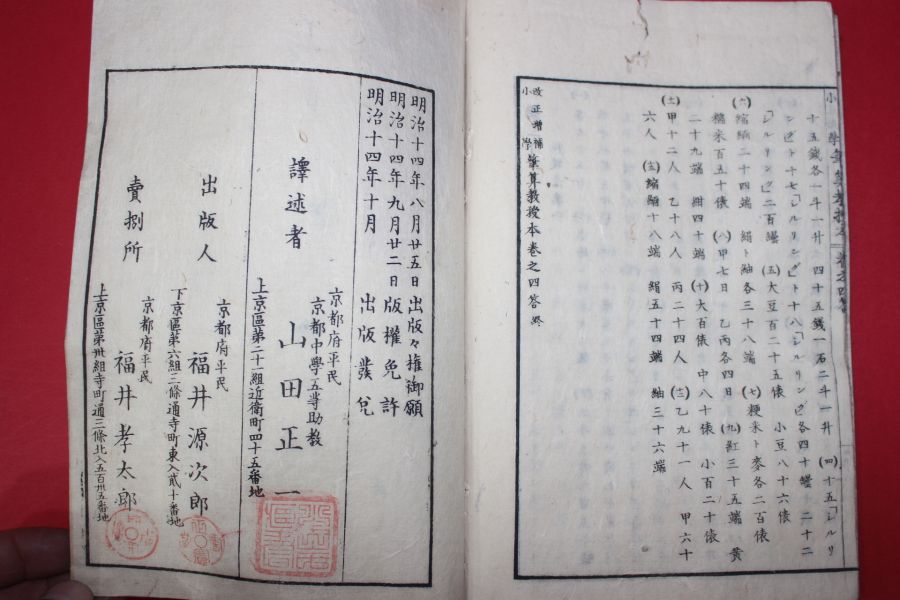 十五錢各一斗一升 四十五錢一石二斗一升 (四)十五「シルリ
ング」ト十七「シルリング」ト十八「シルリング」各四十罎 二十二
「シルリング」二百罎 (五)大豆百二十五俵 小豆八十六俵
(六)縮緬二十四端 絹ト紬各三十八端 (七)粳米ト麥各二百俵
糯米百五十俵 (八)甲七日 乙丙各四日 (九)紅三十五端 黄
二十九端 紺四十端 (十)大百俵 中八十俵 小百二十俵
(土)甲十二人 乙十八人 丙二十四人 (土)乙九十一人 甲六十
六人 (圭)縮緬十八端 絹五十四端 紬三十六端
改正增補
小學筆算教授本卷之四答終
明治十四年八月廿五日出版々權御願
明治十四年九月廿二日版權免許
明治十四年十月 出版發兌
譯述者
京都府平民
京都中學五等助教
山田正一
上京區第二十一組近衞町四十五番地
出版人
京都府平民
福井源次郎
下京區第六組三條通寺町東入貳十番地
賣捌所
京都府平民
福井孝太郎
上京區第卅組寺町通三條北入五百卅五番地